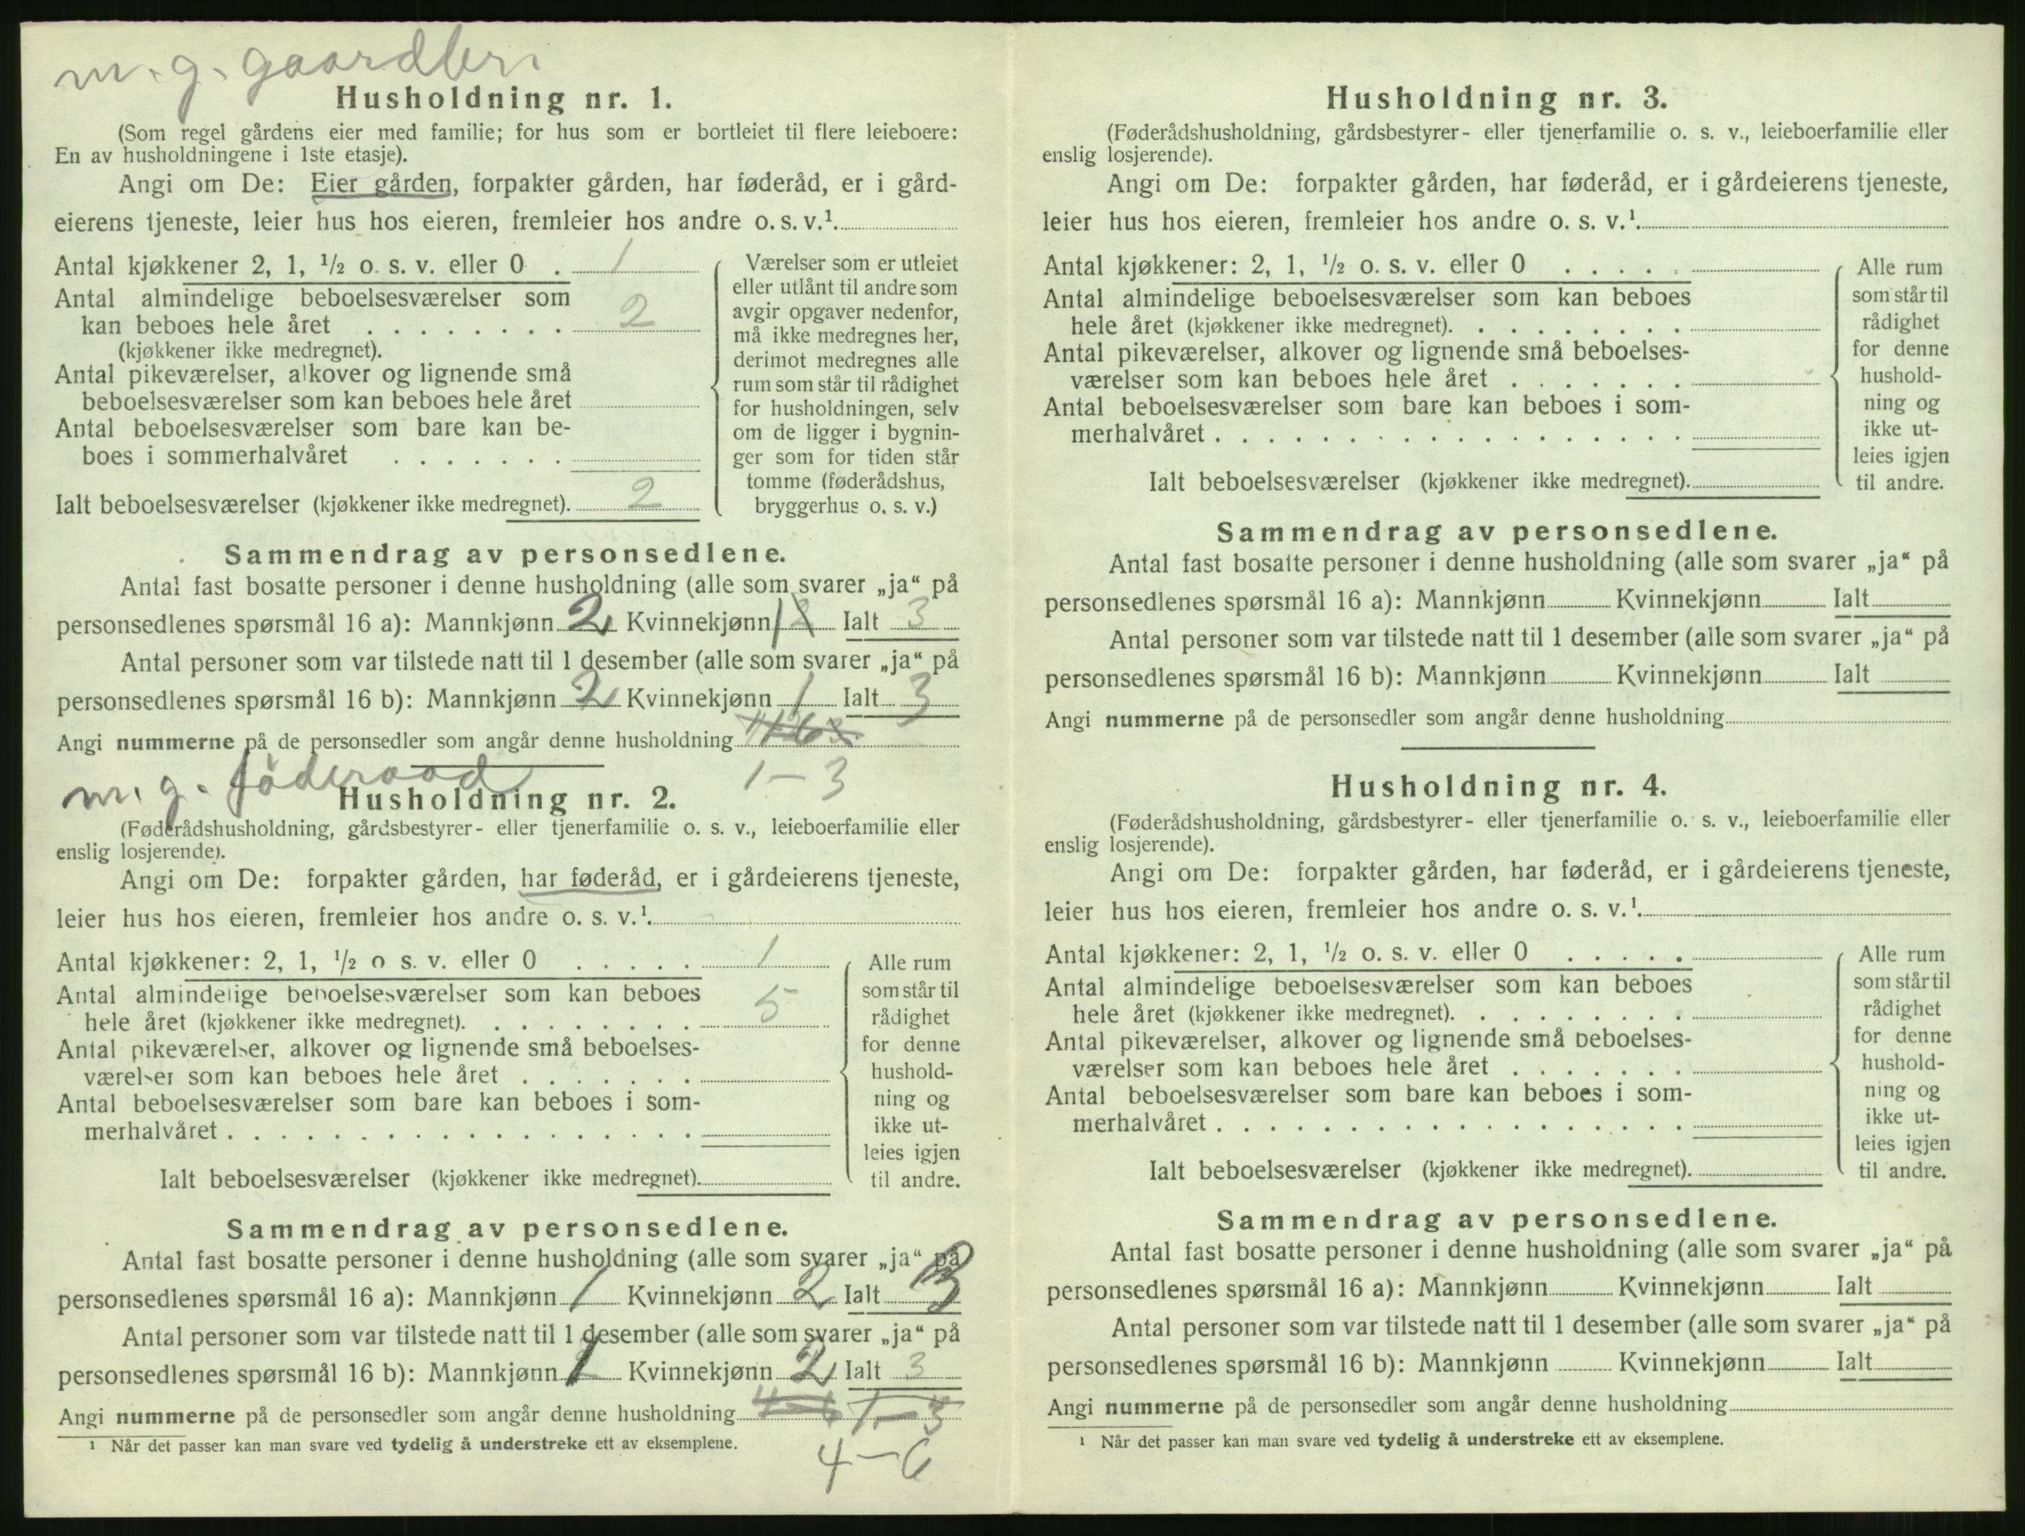 m. g. gaardbr.
Husholdning nr. 1.
(Som regel gårdens eier med familie; for hus som er bortleiet til flere leieboere:
En av husholdningene i 1ste etasje).
Angi om De: Eier gården, forpakter gården, har føderåd, er i gård-
eierens tjeneste, leier hus hos eieren, fremleier hos andre o. s. v.¹.
Antal kjøkkener 2, 1, ½ o. s. v. eller 0 . 1
Antal almindelige beboelsesværelser som
kan beboes hele året . . . . . . . . 2
(kjøkkener ikke medregnet).
Antal pikeværelser, alkover og lignende små
beboelsesværelser som kan beboes hele året
Antal beboelsesværelser som bare kan be-
boes i sommerhalvåret . . . . . . .
Ialt beboelsesværelser (kjøkkener ikke medregnet). 2
Værelser som er utleiet
eller utlånt til andre som
avgir opgaver nedenfor,
må ikke medregnes her,
derimot medregnes alle
rum som står til rådighet
for husholdningen, selv
om de ligger i bygnin-
ger som for tiden står
tomme (føderådshus,
bryggerhus o. s. v.)
Sammendrag av personsedlene.
Antal fast bosatte personer i denne husholdning (alle som svarer „ja“ på
personsedlenes spørsmål 16 a): Mannkjønn 2 Kvinnekjønn 1 2 Ialt 3
Antal personer som var tilstede natt til 1 desember (alle som svarer „ja“ på
personsedlenes spørsmål 16 b): Mannkjønn 2 Kvinnekjønn 1 Ialt 3
Angi nummerne på de personsedler som angår denne husholdning
1-3
m. g. föderaad
Husholdning nr. 2.
(Føderådshusholdning, gårdsbestyrer- eller tjenerfamilie o. s. v., leieboerfamilie eller
enslig losjerende).
Angi om De: forpakter gården, har føderåd, er i gårdeierens tjeneste,
leier hus hos eieren, fremleier hos andre o. s. v.¹.
Antal kjøkkener: 2, 1, ½ o s. v. eller 0 . . . . . 1
Antal almindelige beboelsesværelser som kan beboes
hele året (kjøkkener ikke medregnet). . . . . . . . . 5
Antal pikeværelser, alkover og lignende små beboelses-
værelser som kan beboes hele året . . . . . . .
Antal beboelsesværelser som bare kan beboes i som-
merhalvåret . . . . . . . . . . . . . . . . . .
Ialt beboelsesværelser (kjøkkener ikke medregnet).
Alle rum
som står til
rådighet
for denne
hushold-
ning og
ikke ut-
leies igjen
til andre.
Sammendrag av personsedlene.
Antal fast bosatte personer i denne husholdning (alle som svarer „ja“ på
personsedlenes spørsmål 16 a): Mannkjønn 1 Kvinnekjønn 2 Ialt 3
Antal personer som var tilstede natt til 1 desember (alle som svarer „ja“ på
personsedlenes spørsmål 16 b): Mannkjønn 1 Kvinnekjønn 2 Ialt 3
Angi nummerne på de personsedler som angår denne husholdning 4-6 1-3
¹ Når det passer kan man svare ved tydelig å understreke ett av eksemplene.
4-6
Husholdning nr. 3.
(Føderådshusholdning, gårdsbestyrer- eller tjenerfamilie o. s. v., leieboerfamilie eller
enslig losjerende).
Angi om De: forpakter gården, har føderåd, er i gårdeierens tjeneste,
leier hus hos eieren, fremleier hos andre o. s. v.¹.
Antal kjøkkener: 2, 1, ½ o. s. v. eller 0 . . . . .
Antal almindelige beboelsesværelser som kan beboes
hele året (kjøkkener ikke medregnet). . . . . . . . .
Antal pikeværelser, alkover og lignende små beboelses-
værelser som kan beboes hele året . . . . . . .
Antal beboelsesværelser som bare kan beboes i som-
merhalvåret . . . . . . . . . . . . . . . . . .
Ialt beboelsesværelser (kjøkkener ikke medregnet).
Alle rum
som står til
rådighet
for denne
hushold-
ning og
ikke ut-
leies igjen
til andre.
Sammendrag av personsedlene.
Antal fast bosatte personer i denne husholdning (alle som svarer „ja“ på
personsedlenes spørsmål 16 a): Mannkjønn Kvinnekjønn Ialt
Antal personer som var tilstede natt til 1 desember (alle som svarer „ja“ på
personsedlenes spørsmål 16 b): Mannkjønn Kvinnekjønn Ialt
Angi nummerne på de personsedler som angår denne husholdning
Husholdning nr. 4.
(Føderådshusholdning, gårdsbestyrer- eller tjenerfamilie o. s. v., leieboerfamilie eller
enslig losjerende).
Angi om De: forpakter gården, har føderåd, er i gårdeierens tjeneste,
leier hus hos eieren, fremleier hos andre o. s. v.¹.
Antal kjøkkener: 2, 1, ½ o. s. v. eller 0 . . . . .
Antal almindelige beboelsesværelser som kan beboes
hele året (kjøkkener ikke medregnet). . . . . . . . .
Antal pikeværelser, alkover og lignende små beboelses-
værelser som kan beboes hele året . . . . . . .
Antal beboelsesværelser som bare kan beboes i som-
merhalvåret . . . . . . . . . . . . . . . . . .
Ialt beboelsesværelser (kjøkkener ikke medregnet).
Alle rum
som står til
rådighet
for denne
hushold-
ning og
ikke ut-
leies igjen
til andre.
Sammendrag av personsedlene.
Antal fast bosatte personer i denne husholdning (alle som svarer „ja“ på
personsedlenes spørsmål 16 a): Mannkjønn Kvinnekjønn Ialt
Antal personer som var tilstede natt til 1 desember (alle som svarer „ja“ på
personsedlenes spørsmål 16 b): Mannkjønn Kvinnekjønn Ialt
Angi nummerne på de personsedler som angår denne husholdning
¹ Når det passer kan man svare ved tydelig å understreke ett av eksemplene.